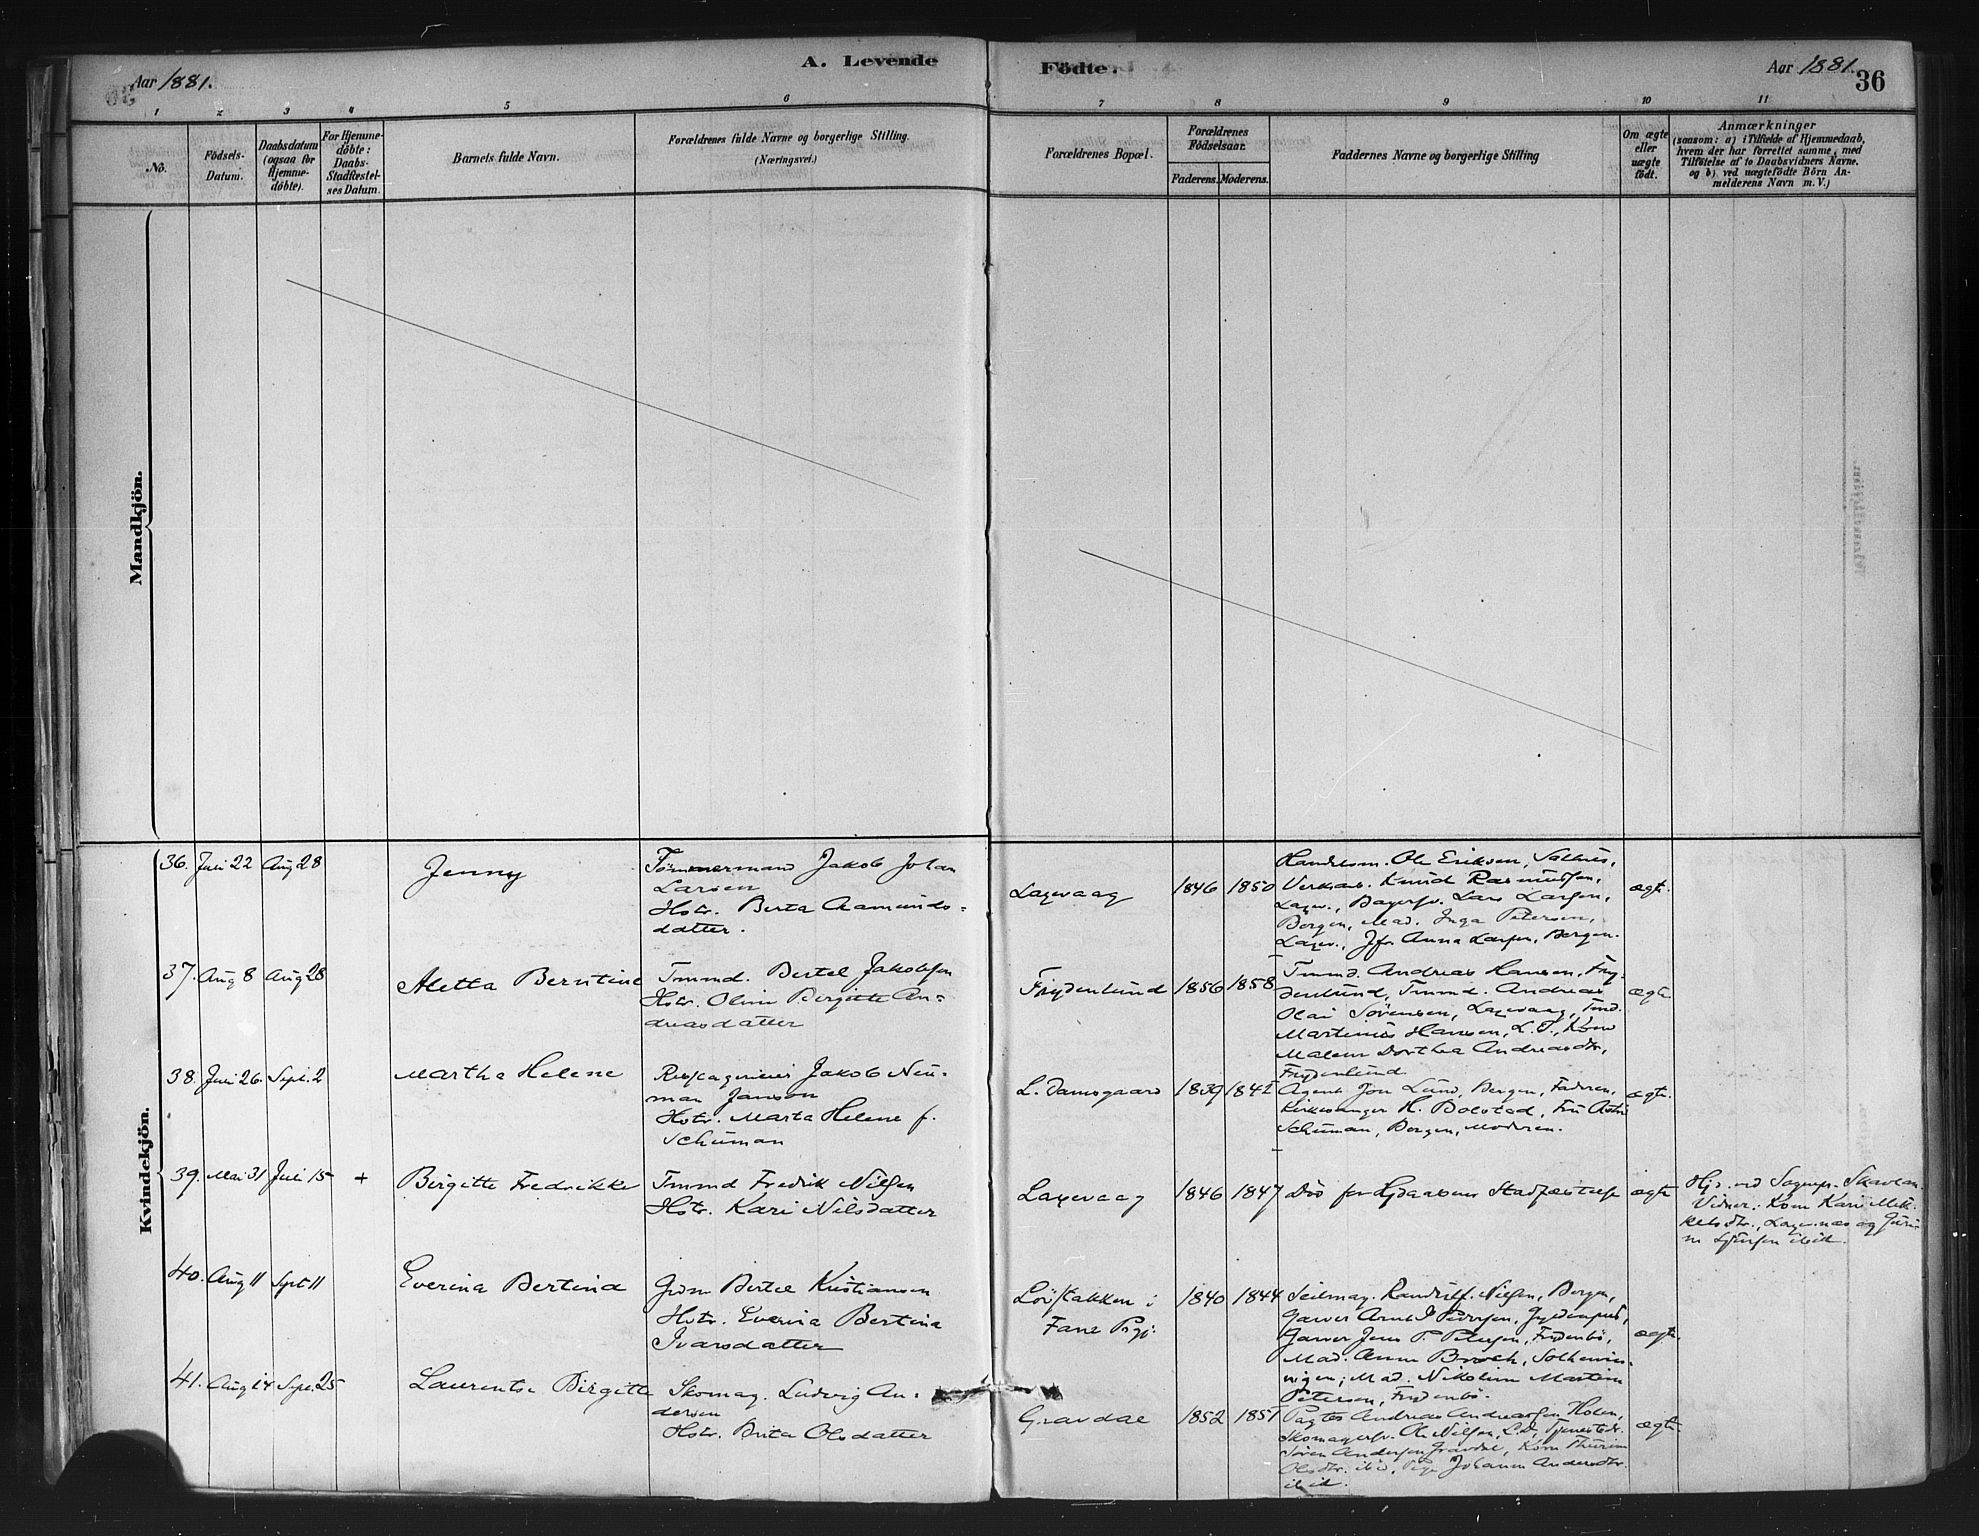 Aar 1881.
A. Levende
Födte.
Aar 1881.
36
1 2 3 4 5 6 7 8 9 10 11
No.
Födsels-
Datum.
Daabsdatum
(ogsaa for
Hjemme-
döbte).
For Hjemme-
döbte:
Daabs-
Stadfæstel-
ses Datum.
Barnets fulde Navn.
Forældrenes fulde Navne og borgerlige Stilling.
(Næringsvei.)
Forældrenes Bopæl.
Forældrenes
Födselsaar.
Faderens. Moderens.
Faddernes Navne og borgerlige Stilling
Om ægte
eller
uægte
födt.
Anmærkninger
(saasom: a) i Tilfælde af Hjemmedaab,
hvem der har forrettet samme, med
Tilföielse af to Daabsvidners Navne.
og b) ved uægtefödte Börn An-
melderens Navn m. V.)
Mandkjön.
Kvindekjön.
36. Juli 22 Aug 28
Jenny
Tömmermand Jakob Johan
Larsen
Hstr. Berta Aamunds-
datter.
Laxevaag
1846 1850
Handelsm. Ole Eriksen,
Knud Rasmussen,
Laxev., Lars Larsen,
Bergen, Mad. Inga Petersen,
Laxev., Jfr Anna Larsen, Bergen.
ægte.
37. Aug 8 Aug 28
Aletta Berntine
Tmmd. Bertel Jakobsen
Hstr. Oline Birgitte An-
dreasdatter
Frydenlund
1856 1858
Tmmd. Andreas Hansen, Fry-
denlund, Tmmd. Andreas
Olai Sörensen, Laxevaag, Tmd.
Martinus Hansen, L. D., Kone
Malene Dorthea Andreasdtr,
Frydenlund
ægte
38. Juli 26. Sept. 2
Martha Helene
Jakob Neu-
man Janson
Hstr. Marta Helene f.
Schuman
L. Damsgaard
1839 1842
Agent Jon Lund, Bergen, Faderen,
Kirkesanger H. Bolstad, Fru
Schuman, Bergen, Moderen.
ægte.
39. Mai 31 Juli 15 +
Birgitte Fredrikke
Tmmd Fredrik Nilsen
Hstr. Kari Nilsdatter
Laxevaag
1846 1847
Död før Daabens Stadfæstelse
ægte
Hjd. ved Sognepr. Skavlan.
Vidner: Kone Kari Mik-
kelsdtr., Laxevaag og
ibid.
40. Aug 11 Sept 11
Everina Bertina
Grdm Bertel Kristiansen
Hstr. Everina Bertina
Ivarsdatter
Lövstakken i
Fane Prgj.
1840 1844
Seilmag. Nilsen, Bergen,
Garver
Garver Jens P. Petersen, Frydenbö,
Mad. Anna Broch, Solheims-
vigen, Mad. Nikoline Martine
Petersen, Frydenbö.
ægte.
41. Aug 14 Sept. 25
Laurentse Birgitte
Skomag. Ludvig An-
dersen
Hstr. Brita Olsdatter
Gravdal
1852 1851
Andreas Andreassen Holen,
Skomagersv. Ole Nilsen, L. D.,
Sören Andersen Gravdal, Kone
Olsdtr. ibid, Pige Johanne Andersdtr.
ibid.
ægte.